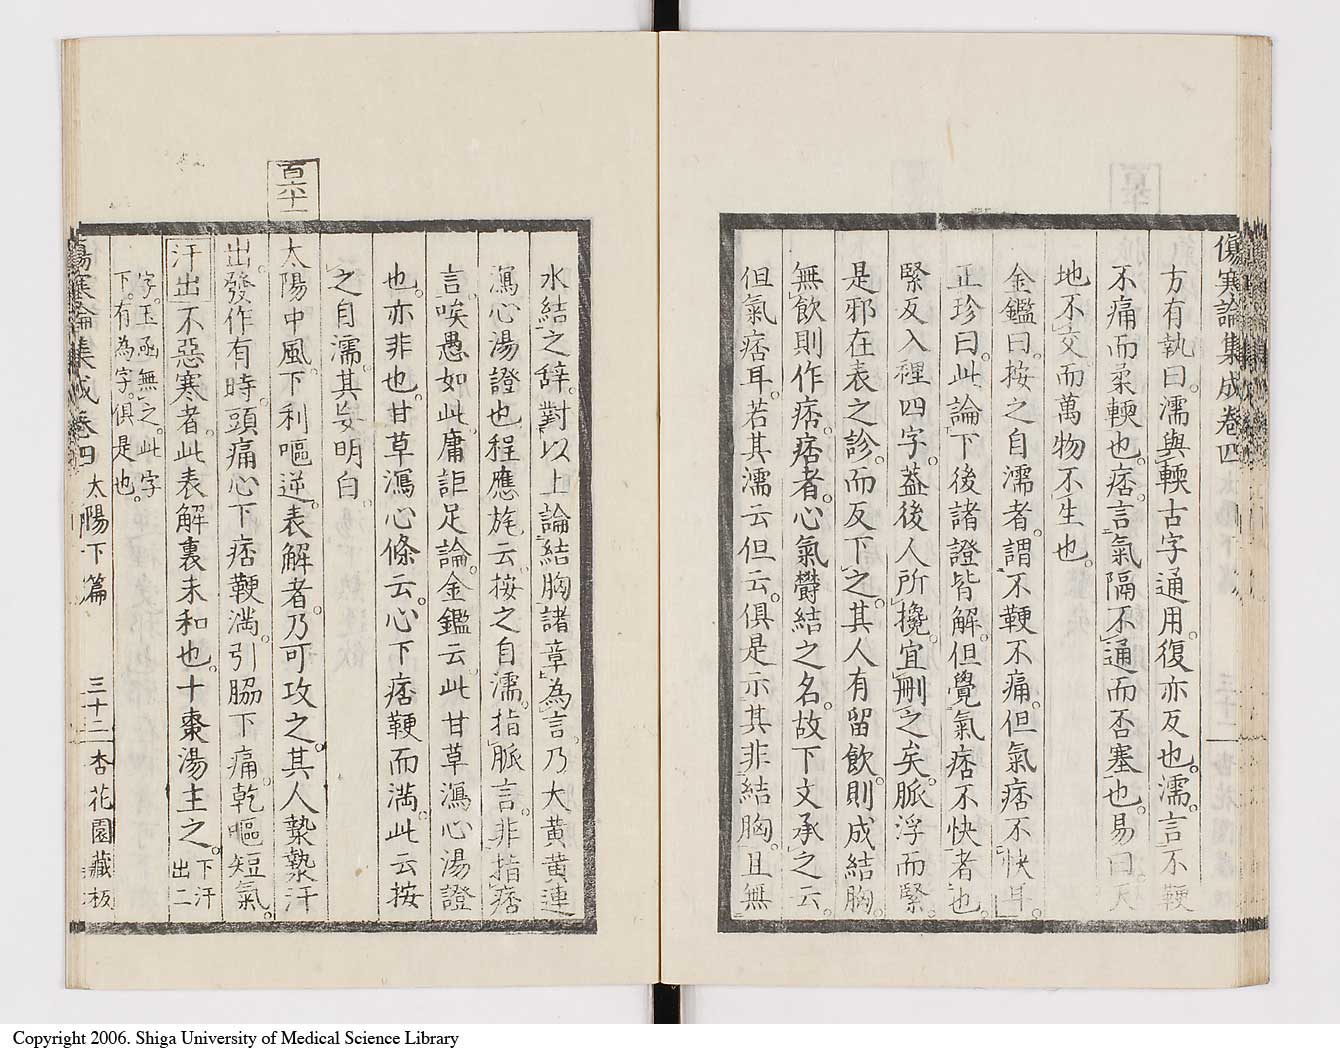 傷寒論集成卷四
方有執曰。濡與輭古字通用。復亦反也。濡。言不鞕
不痛而柔輭也。痞。言氣隔不通而否塞也。易曰。天
地不交而萬物不生也。
金鑑曰。按之自濡者。謂不鞕不痛。但氣痞不快耳。
正珍曰。此論下後諸證皆解。但覺氣痞不快者也。
緊反入裡四字。蓋後人所攙。宜刪之矣。脈浮而緊。
是邪在表之診。而反下之。其人有留飲。則成結胸。
無飲則作痞。痞者。心氣欝結之名。故下文承之云。
但氣痞耳。若其濡云但云。俱是示其非結胸。且無
水結之辞。對以上論結胸諸章為言。乃大黄黄連
瀉心湯證也。程應旄云。按之自濡。指脈言。非指痞
言。唉愚如此。庸詎足論。金鑑云。此甘草瀉心湯證
也。亦非也。甘草瀉心條云。心下痞鞕而満。此云按
之自濡。其妄明白。
百六十一
太陽中風。下利嘔逆。表解者。乃可攻之。其人漐漐汗
出。發作有時。頭痛。心下痞鞕満。引脇下痛。乾嘔短氣。
汗出不惡寒者。此表解裏未和也。十棗湯主之。下汗出二
字。玉函無之。此字
下。有為字。俱是也。
傷寒論集成卷四 太陽下篇 三十二 杏花園藏板
Copyright 2006. Shiga University of Medical Science Library